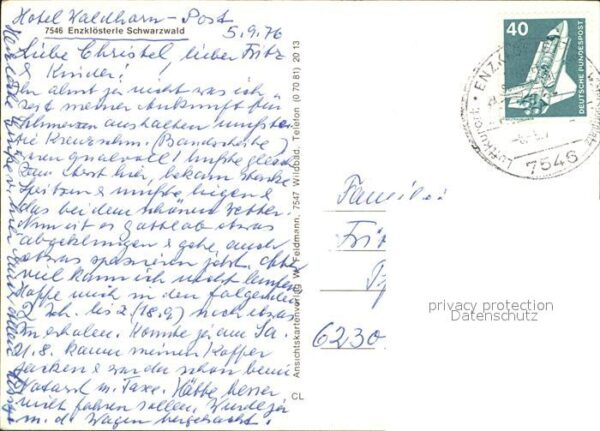 Hotel Waldhorn - Post
7546 Enzklösterle Schwarzwald
5.9.76
Liebe Christel, lieber Fritz
& Kinder!
Ihr ahnt ja nicht was ich
seit meiner Ankunft für
Schmerzen aushalten mußte.
die Kreuzschm. (Bandscheibe)
waren qualvoll! Mußte gleich
zum Arzt hier, bekam starke
Spritzen & mußte liegen &
das bei dem schönen Wetter.
Nun ist es Gottlob etwas
abgeklungen & gehe auch
etwas spazieren jetzt. Aber
viel kann ich nicht laufen
Hoffe mich in den folgenden
2 Wch. bis z. (18.9.) noch etwas
zu erholen. Konnte ja am Sa.
21.8. kaum meinen Koffer
packen & war da schon beim
Notarzt m. Taxe. Hätte besser
nicht fahren sollen. Wurde ja
m. d. Wagen hergebracht.
Herzliche Grüße
Ansichtskartenverlag W. Feldmann, 7547 Wildbad, Telefon (0 70 81) 20 13
CL
40
DEUTSCHE BUNDESPOST
Luftkurort
7546
Familie
Frit
6230
privacy protection
Datenschutz